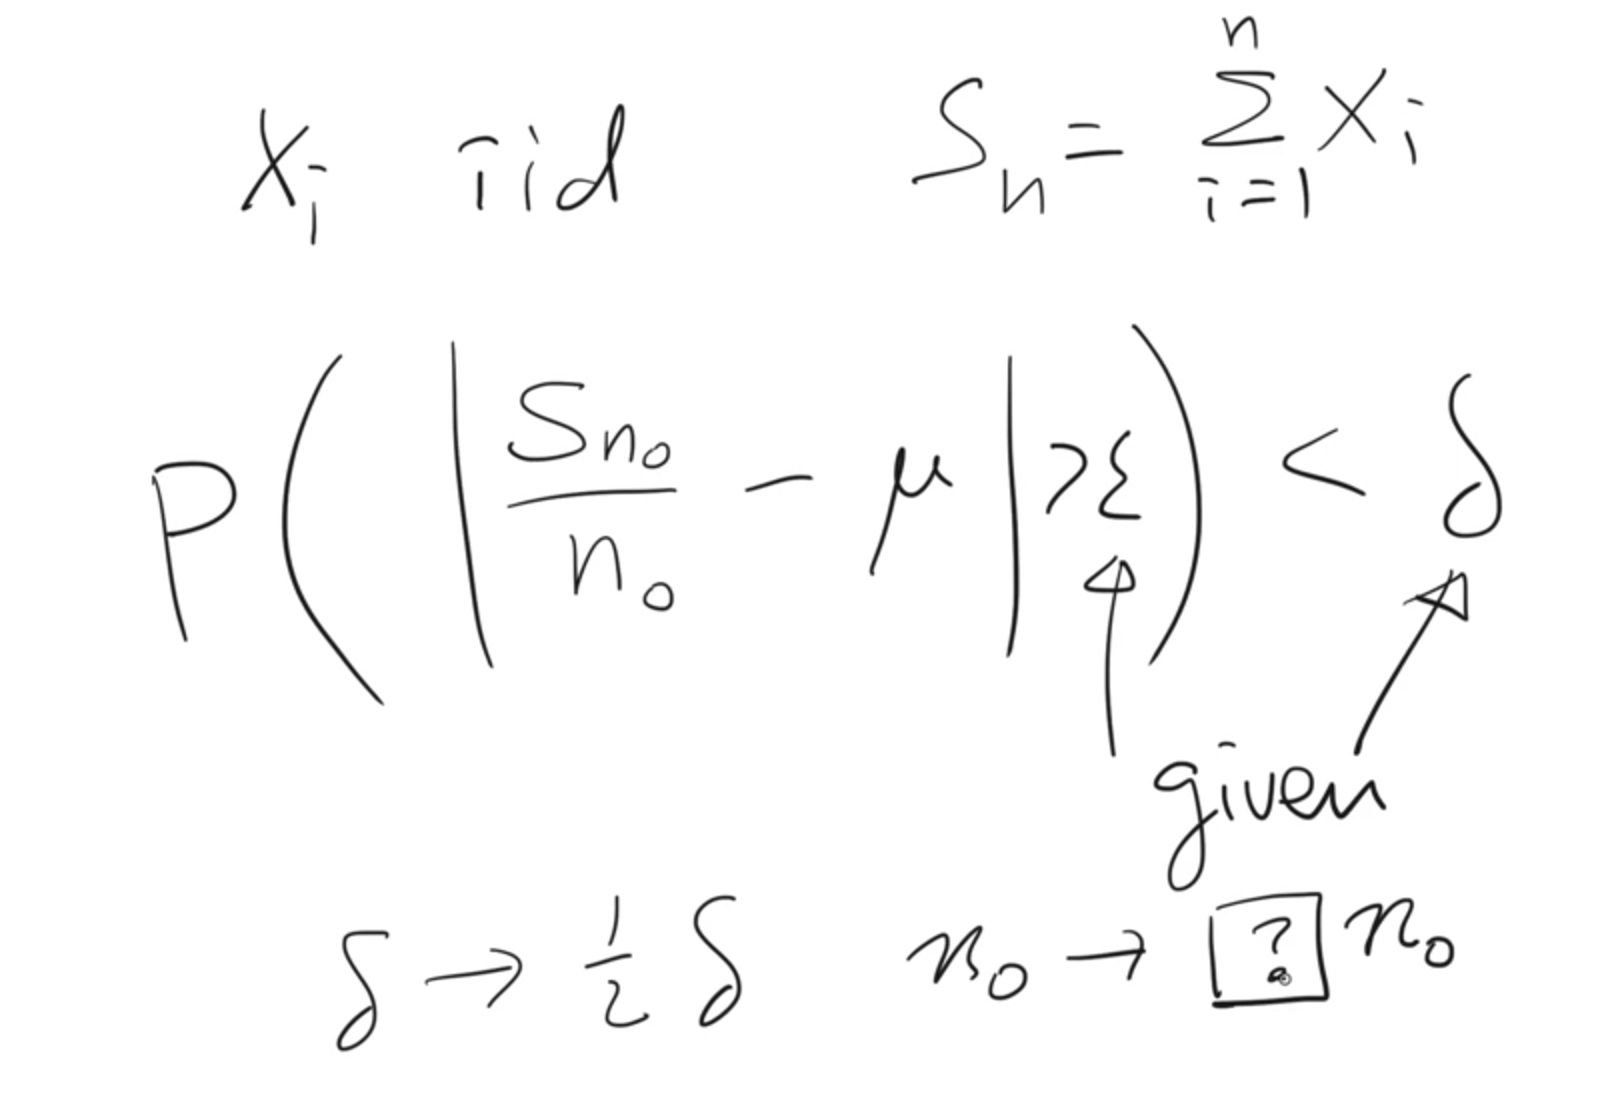 X_i iid S_n = \sum_{i=1}^{n} X_i
P( | \frac{S_{n_0}}{n_0} - μ | > ε ) < δ
given
δ → \frac{1}{2} δ n_0 → ? n_0